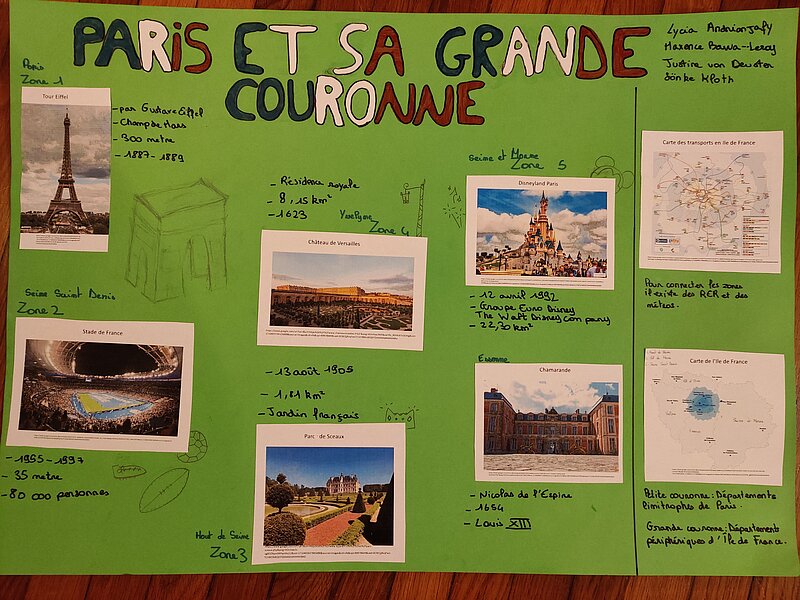 PARIS ET SA GRANDE
COURONNE
Maxence Bawa--Leroy
Justine van Deuster
Sönke Kloth
Paris
Zone 1
Tour Eiffel
- par Gustave Eiffel
- Champ de Mars
- 300 metre
- 1887-1889
Seine Saint Denis
Zone 2
Stade de France
- 1995-1997
- 35 metre
- 80 000 personnes
- Résidence royale
- 8,15 km²
- 1623
Zone 4
Château de Versailles
- 13 août 1905
- 1,81 km²
- Jardin français
Parc de Sceaux
Haut de Seine
Zone 3
Seine et Marne
Zone 5
Disneyland Paris
- 12 avril 1992
- Groupe Euro Disney
The Walt Disney company
- 22,30 km²
Essonne
Chamarande
- Nicolas de l'Espine
- 1654
- Louis XIII
Carte des transports en Ile de France
Pour connecter les zones
il existe des RER et des
métros.
Carte de l'Ile de France
Petite couronne: Départements
limitrophes de Paris.
Grande couronne: Département
périphériques d'Île de France.